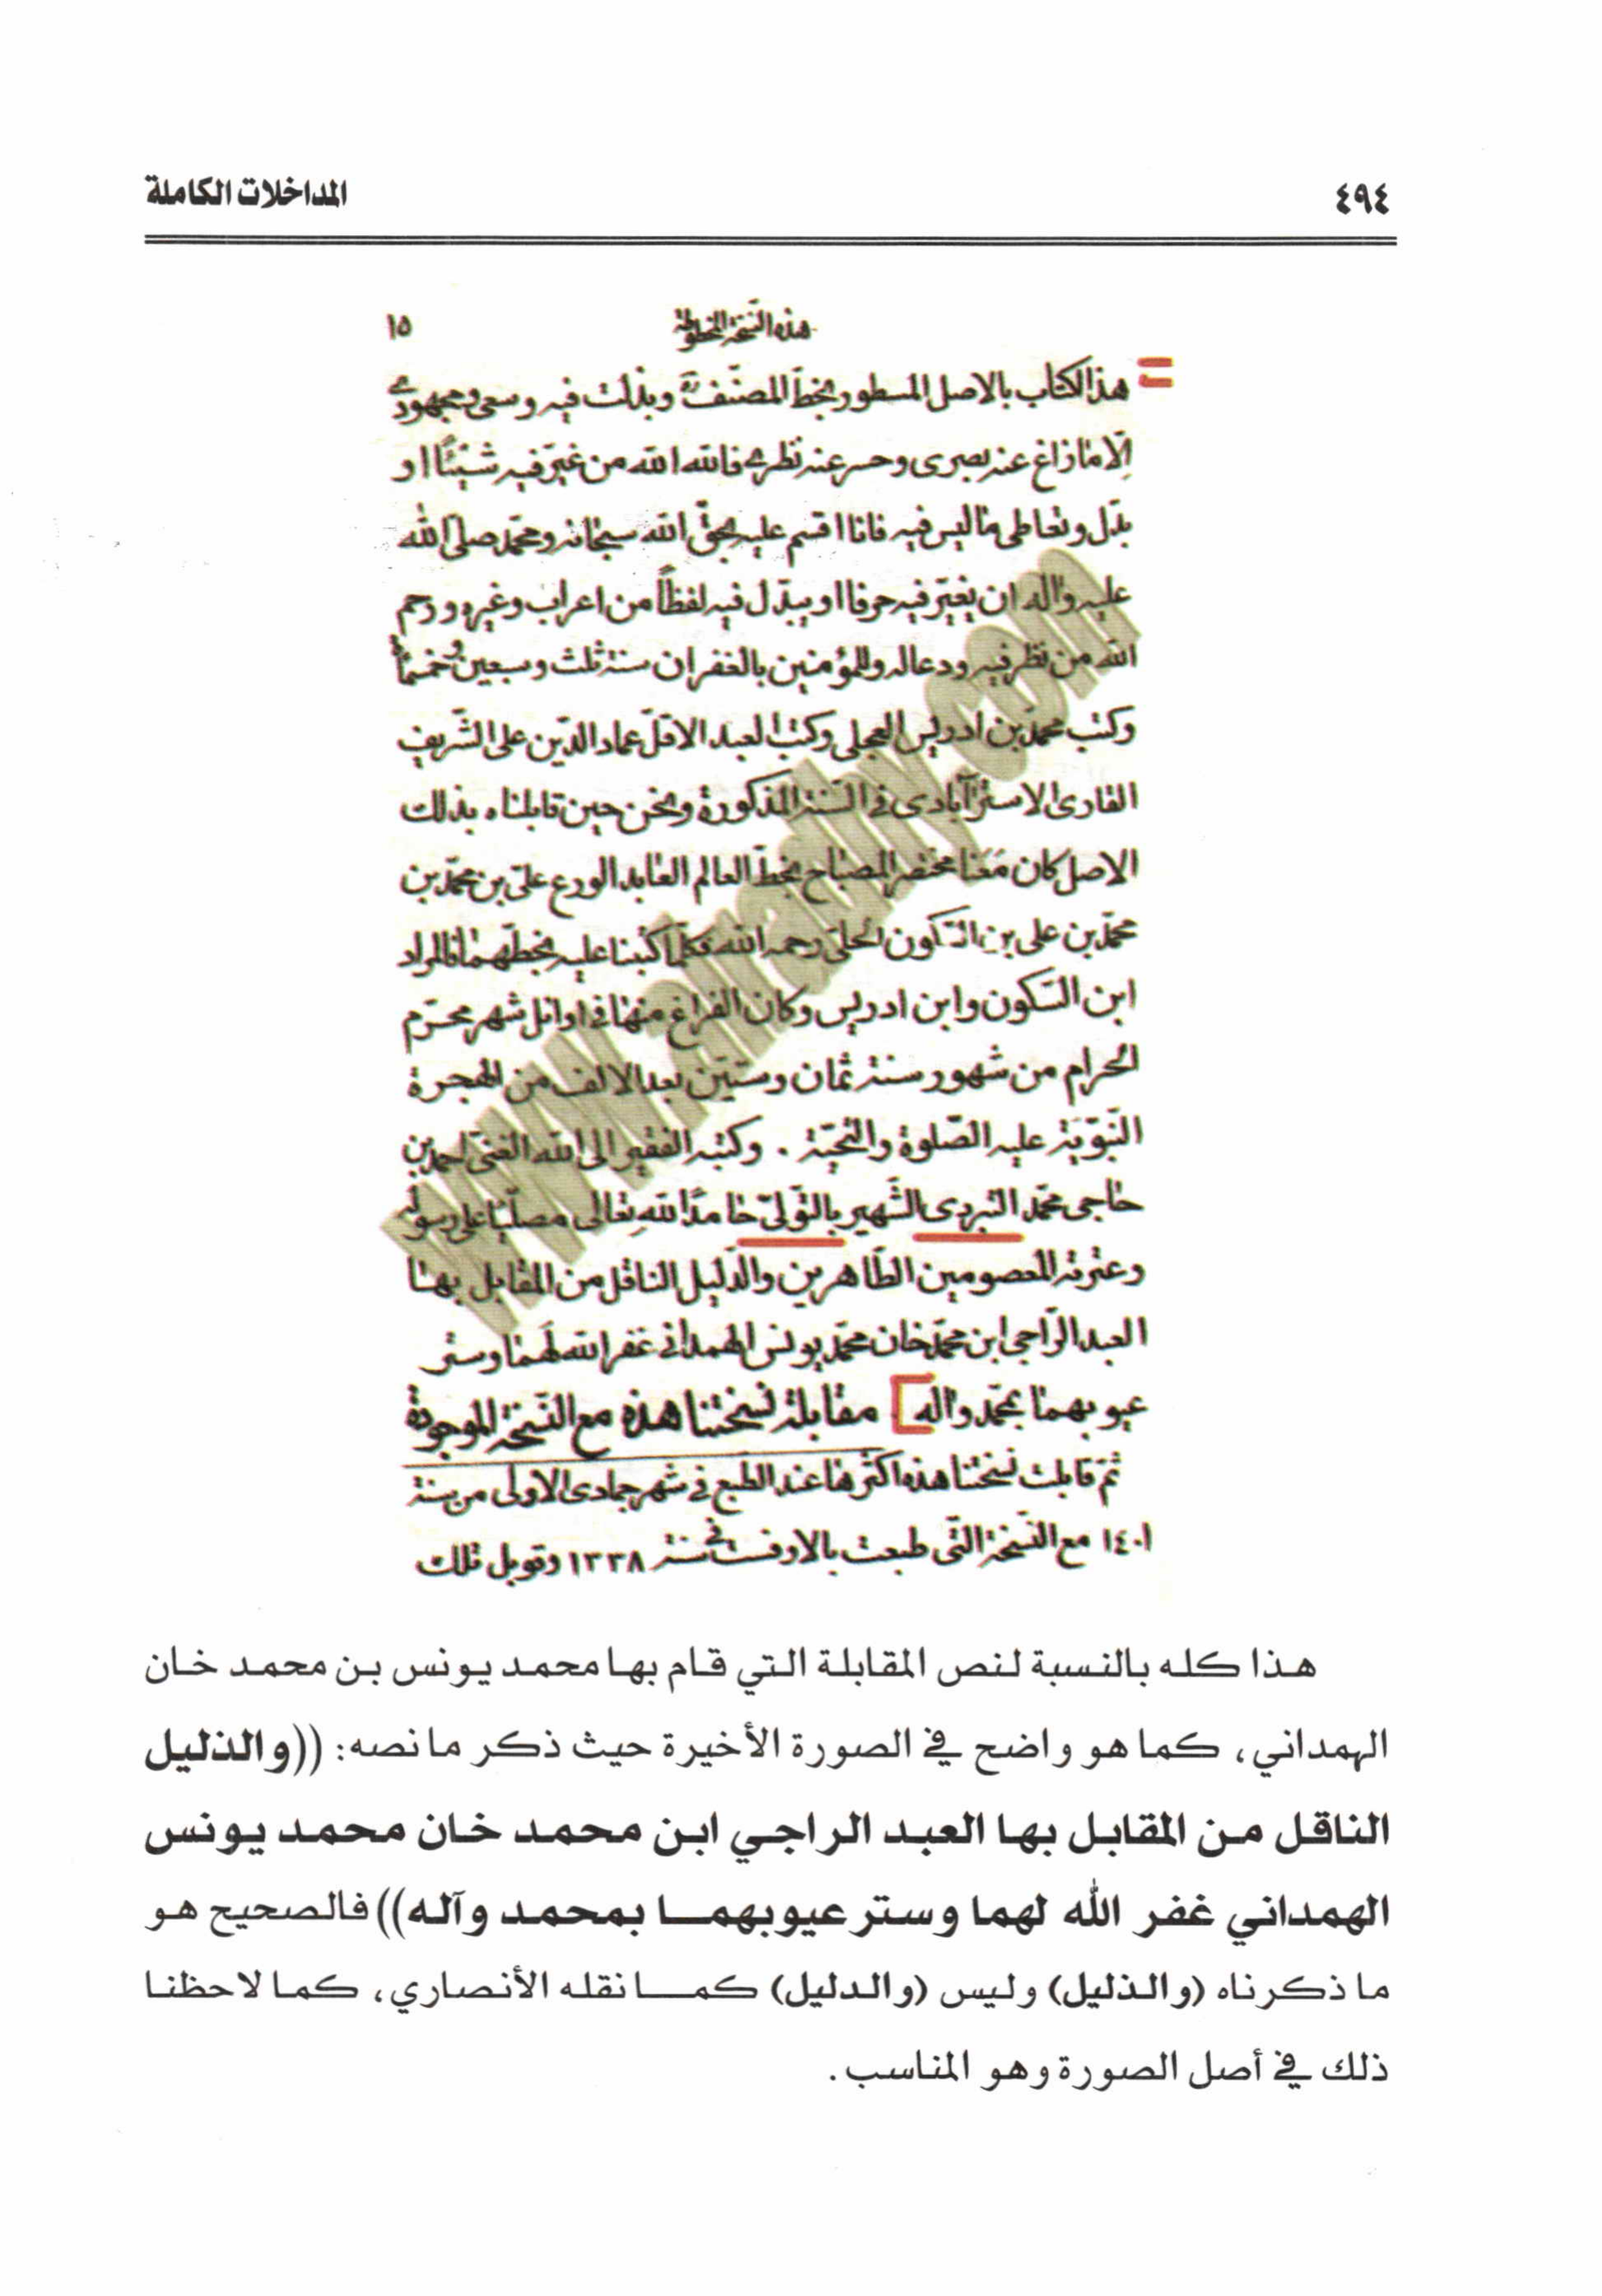 ٤٩٤ المداخلات الكاملة
هذه النسخة المخطوطة ١٥
هذا الكتاب بالاصل المسطور بخطّ المصنّف وبذلت فيه وسعى ومجهودى
الّا ما زاغ عنه بصرى وحسر عنه نظرى فالله الله من غيّر فيه شيئًا او
بدّل وتعاطى ما ليس فيه فانا اقسم عليه بحقّ الله سبحانه ومحمّد صلّى الله
عليه واله ان يغيّر فيه حرفا او يبدّل فيه لفظاً من اعراب وغيره ورحم
الله من نظر فيه ودعا له وللمؤمنين بالغفران سنة ثلث وسبعين وخمسمائة
وكتب محمّد بن ادريس العجلى وكتب العبد الاقلّ عماد الدّين على الشّريف
القارئ الاسترآبادى فى السّنة المذكورة ونحن حين قابلناه بذلك
الاصل كان معنا مختصر المصباح بخطّ العالم العابد الورع علىّ بن محمّد بن
محمّد بن على بن السّكون الحلىّ رحمه الله فكلّما كتبنا عليه بخطّهما فالمراد
ابن السّكون وابن ادريس وكان الفراغ منها فى اوائل شهر محرّم
الحرام من شهور سنة ثمان وستّين بعد الالف من الهجرة
النّبويّة عليه الصّلوة والتّحيّة . وكتبه الفقير الى الله الغنىّ احمد بن
حاجى محمّد البزدى الشّهير بالتّولّىّ حامدًا لله تعالى مصلّيًا على رسوله
وعترته المعصومين الطّاهرين والدّليل الناقل من المقابل بها
العبد الرّاجى ابن محمّد خان محمّد يونس الهمدانى غفر الله لهما وستر
عيوبهما بمحمّد واله] مقابلة نسختنا هذه مع النّسخة الموجودة
ثمّ قابلت نسختنا هذه اكثرها عند الطبع فى شهر جمادى الاولى من سنة
١٤٠١ مع النّسخة الّتى طبعت بالاوفست فى سنة ١٣٣٨ وقوبل تلك
www..com
هذا كله بالنسبة لنص المقابلة التي قام بها محمد يونس بن محمد خان
الهمداني، كما هو واضح في الصورة الأخيرة حيث ذكر ما نصه: ((والذليل
الناقل من المقابل بها العبد الراجي ابن محمد خان محمد يونس
الهمداني غفر الله لهما وستر عيوبهما بمحمد وآله)) فالصحيح هو
ما ذكرناه (والذليل) وليس (والدليل) كما نقله الأنصاري، كما لاحظنا
ذلك في أصل الصورة وهو المناسب.